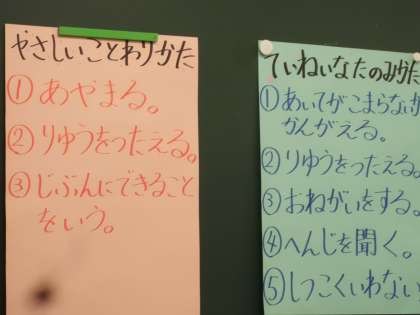 やさしいことわりかた
①あやまる。
②りゆうをつたえる。
③じぶんにできること
をいう。
ていねいなたのみかた
①あいてがこまらないか
かんがえる。
②りゆうをつたえる。
③おねがいをする。
④へんじを聞く。
⑤しつこくいわない